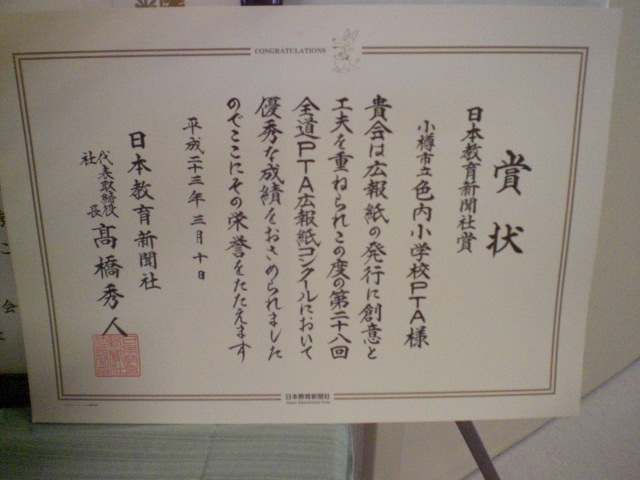 CONGRATULATIONS
賞状
日本教育新聞社賞
小樽市立色内小学校PTA様
貴会は広報紙の発行に創意と
工夫を重ねられこの度の第二十八回
全道PTA広報紙コンクールにおいて
優秀な成績をおさめられました
のでここにその栄誉をたたえます
平成二十三年三月十日
日本教育新聞社
代表取締役
社長
髙橋秀人
日本教育新聞社